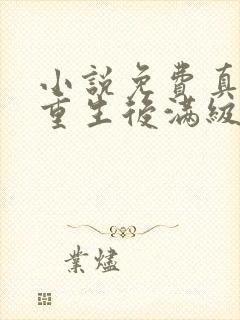 小說免費真
重生後滿級
業燼